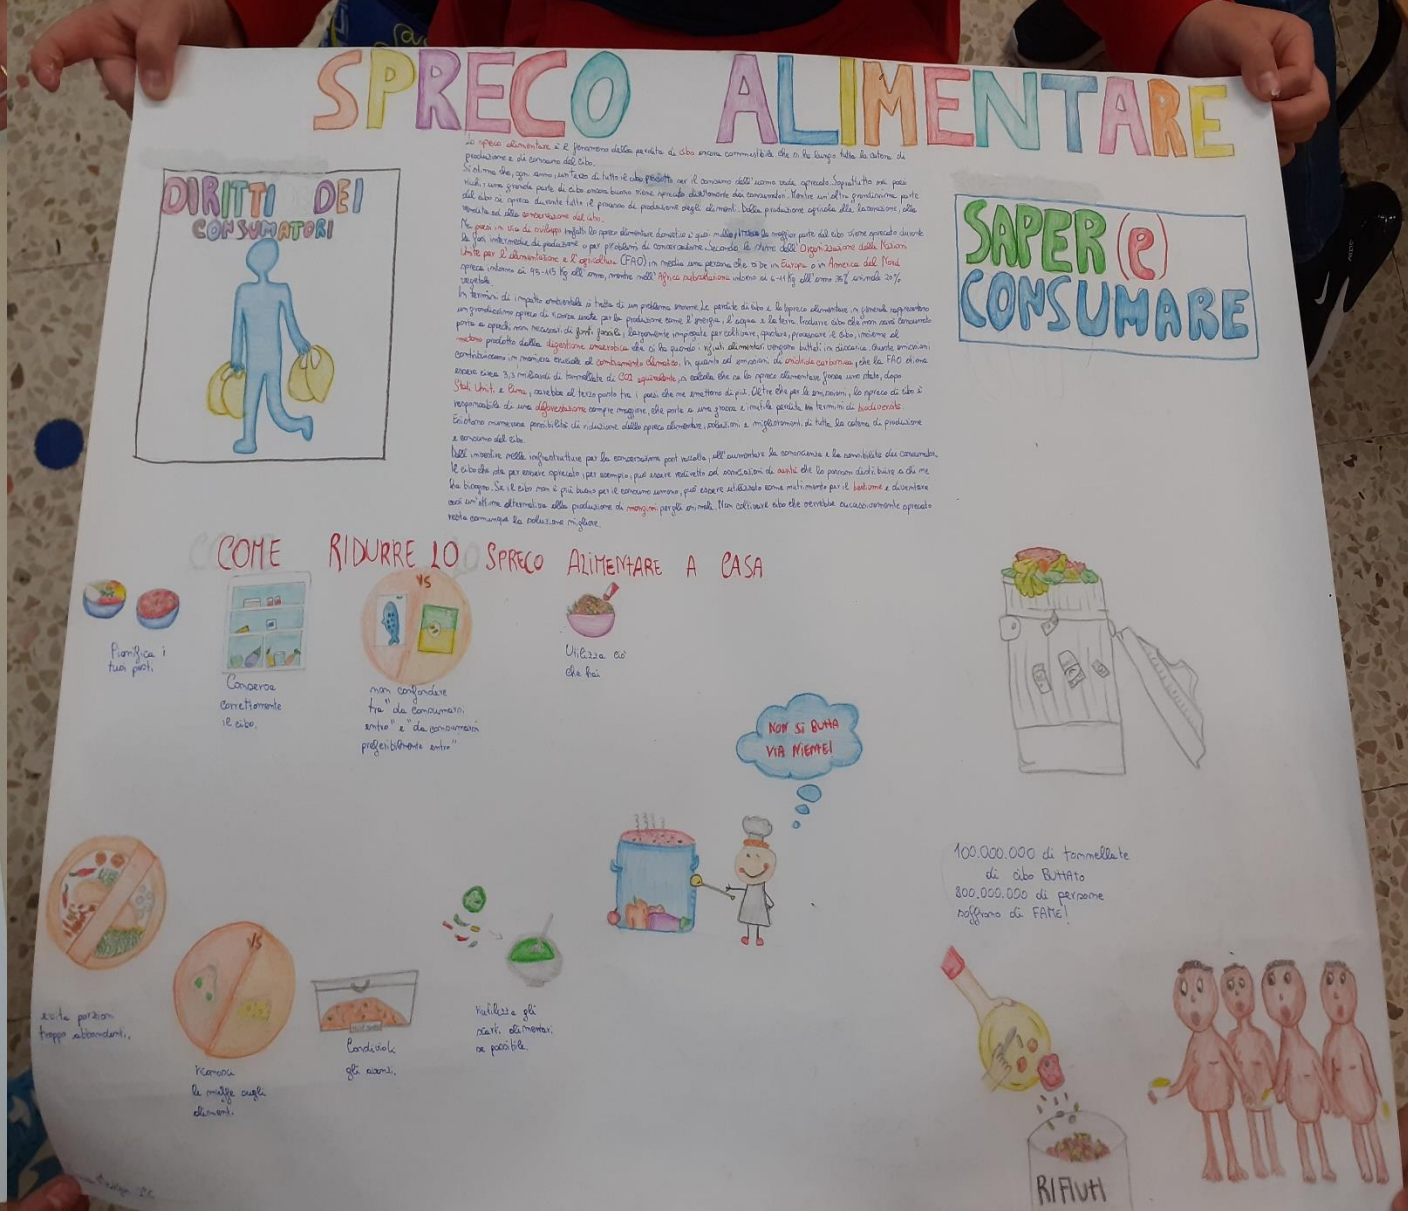 SPRECO ALIMENTARE
DIRITTI DEI
CONSUMATORI
SAPER(e)
CONSUMARE
Lo spreco alimentare è il fenomeno della perdita di cibo ancora commestibile che si ha lungo tutta la catena di
produzione e di consumo del cibo.
Si stima che, ogni anno, un terzo di tutto il cibo prodotto per il consumo dell'uomo vada sprecato. Soprattutto nei paesi
ricchi, una grande parte di cibo ancora buono viene sprecato direttamente dai consumatori. Mentre un'altra grandissima parte
del cibo si spreca durante tutto il processo di produzione degli alimenti. Dalla produzione agricola alla lavorazione, alla
vendita ed alla conservazione del cibo.
Nei paesi in via di sviluppo infatti lo spreco alimentare domestico è quasi nullo, la maggior parte del cibo viene sprecato durante
le fasi intermedie di produzione o per problemi di conservazione. Secondo le stime dell'Organizzazione delle Nazioni
Unite per l'alimentazione e l'agricoltura (FAO) in media una persona che vive in Europa o in America del Nord
spreca intorno ai 95-115 Kg all'anno, mentre nell'Africa subsahariana intorno ai 6-11 Kg all'anno 36% animale 20%
vegetale.
In termini di impatto ambientale si tratta di un problema enorme. Le perdite di cibo e lo spreco alimentare in generale rappresentano
un grandissimo spreco di risorse usate per la produzione come l'energia, l'acqua e la terra. Produrre cibo che non sarà consumato
porta a sprechi non necessari di fonti fossili, largamente impiegate per coltivare, spostare, processare il cibo, insieme al
metano prodotto dalla digestione anaerobica che si ha quando i rifiuti alimentari vengono buttati in discarica. Queste emissioni
contribuiscono in maniera cruciale al cambiamento climatico. In quanto ad emissioni di anidride carbonica, che la FAO stima
essere circa 3,3 miliardi di tonnellate di CO2 equivalente, si calcola che se lo spreco alimentare fosse uno stato, dopo
Stati Uniti e Cina, sarebbe al terzo posto tra i paesi che ne emettono di più. Oltre che per le emissioni, lo spreco di cibo è
responsabile di una deforestazione sempre maggiore, che porta a una grossa e inutile perdita in termini di biodiversità.
Esistono numerose possibilità di riduzione dello spreco alimentare, soluzioni e miglioramenti di tutta la catena di produzione
e consumo del cibo.
Dall'investire nelle infrastrutture per la conservazione post raccolta, all'aumentare la conoscenza e la sensibilità dei consumatori.
Il cibo che sta per essere sprecato, per esempio, può essere rediretto ad associazioni di carità che lo possan distribuire a chi ne
ha bisogno. Se il cibo non è più buono per il consumo umano, può essere utilizzato come nutrimento per il bestiame e diventare
così un'ottima alternativa alla produzione di mangimi per gli animali. Non coltivare cibo che verrebbe successivamente sprecato
resta comunque la soluzione migliore.
COME RIDURRE LO SPRECO ALIMENTARE A CASA
VS
Pianifica i
tuoi pasti.
Conserva
correttamente
il cibo.
non confondere
tra "da consumarsi
entro" e "da consumarsi
preferibilmente entro"
Utilizza ciò
che hai
NON SI BUTTA
VIA NIENTE!
100.000.000 di tonnellate
di cibo BUTTATO
800.000.000 di persone
soffrono di FAME!
evita porzioni
troppo abbondanti.
VS
riconosci
le muffe sugli
alimenti.
Condividi
gli avanzi.
riutilizza gli
scarti alimentari
se possibile.
RIFIUTI